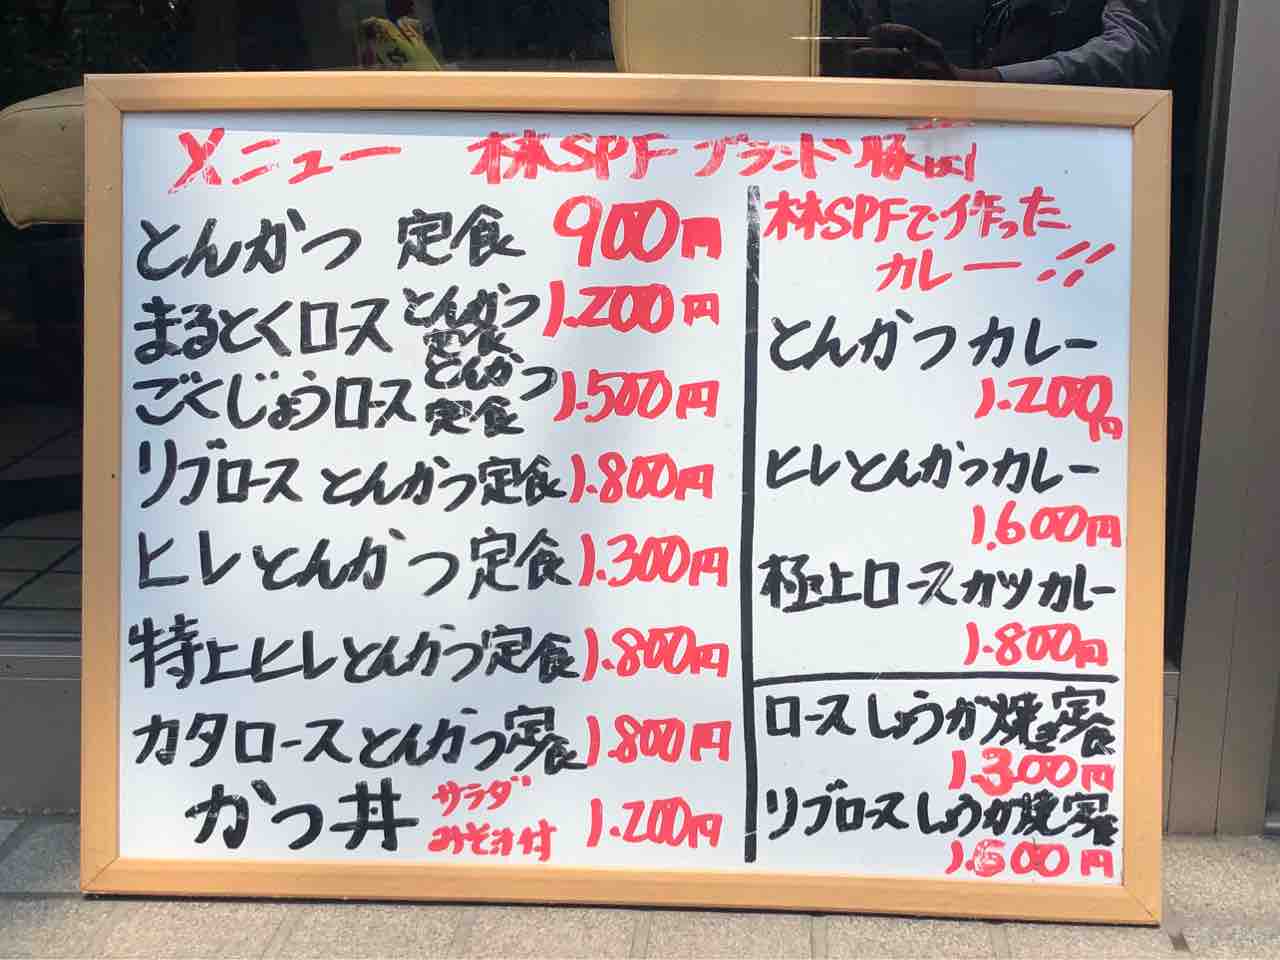 メニュー 林SPFブランド豚肉
とんかつ 定食 900円
まるとくロース とんかつ定食 1.200円
ごくじょうロース とんかつ定食 1.500円
リブロース とんかつ定食 1.800円
ヒレとんかつ定食 1.300円
特上ヒレとんかつ定食 1.800円
カタロースとんかつ定食 1.800円
かつ丼 サラダ みそ汁付 1.200円
林SPFで作った
カレー!!
とんかつカレー
1.200円
ヒレとんかつカレー
1.600円
極上ロースカツカレー
1.800円
ロースしょうが焼き定食
1.300円
リブロースしょうが焼定食